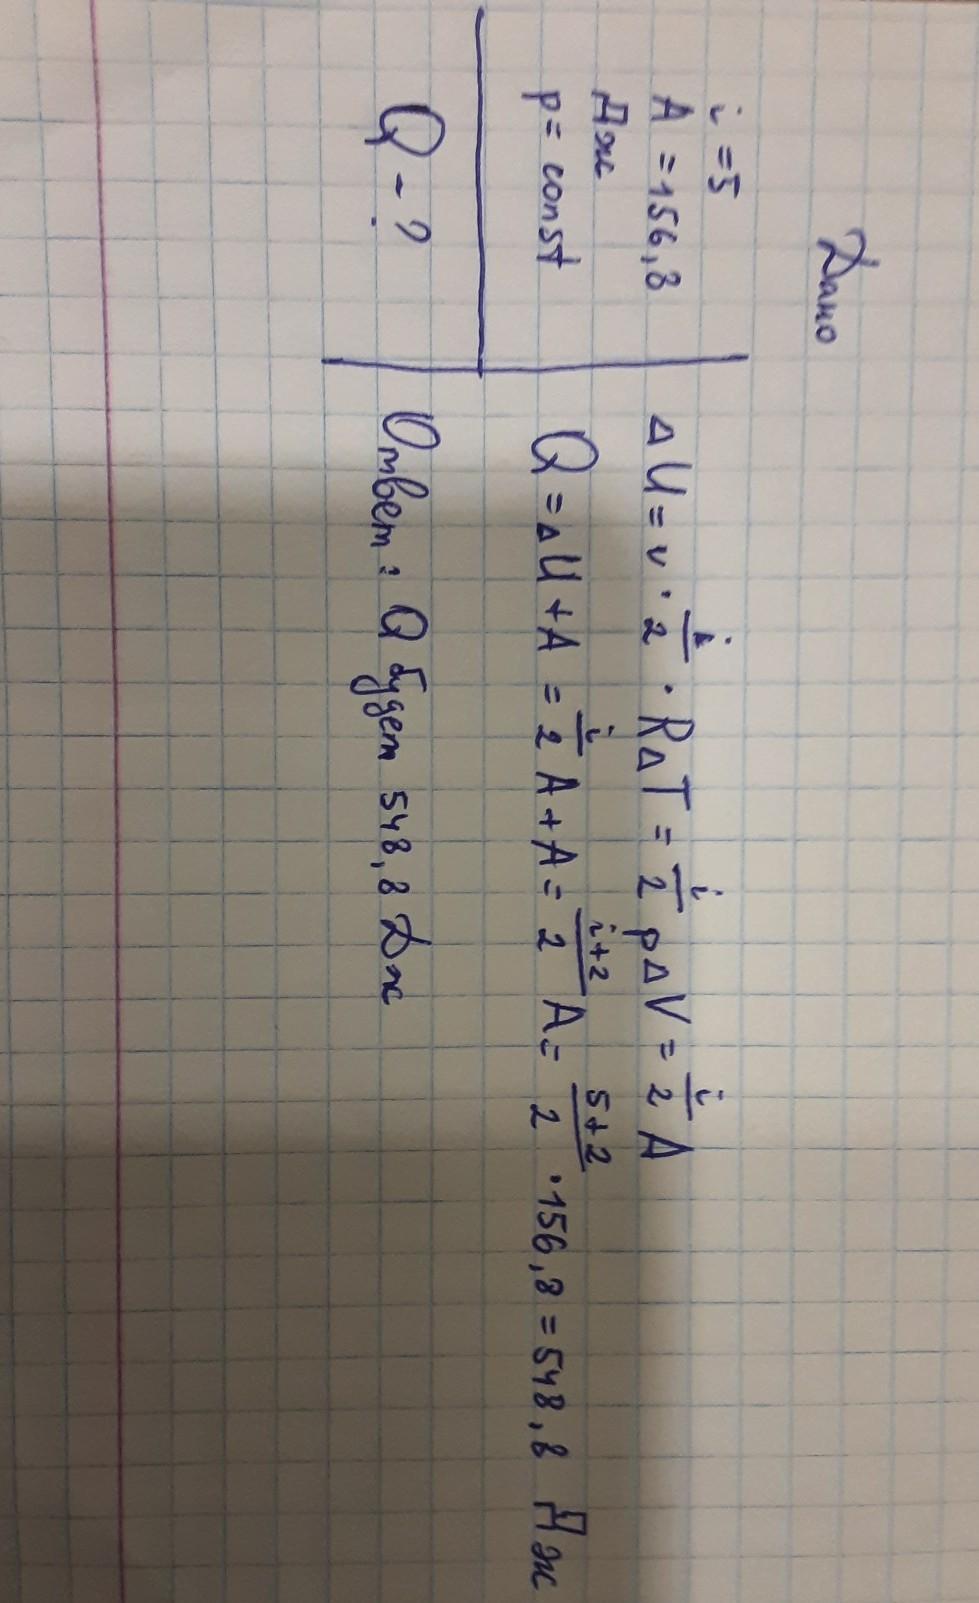 Дано
i = 5
A = 156,8
Дж
p = const
Q - ?
ΔU = ν · i/2 · RΔT = i/2 pΔV = i/2 A
Q = ΔU + A = i/2 A + A = i+2/2 A = 5+2/2 · 156,8 = 548,8 Дж
Ответ: Q будет 548,8 Дж